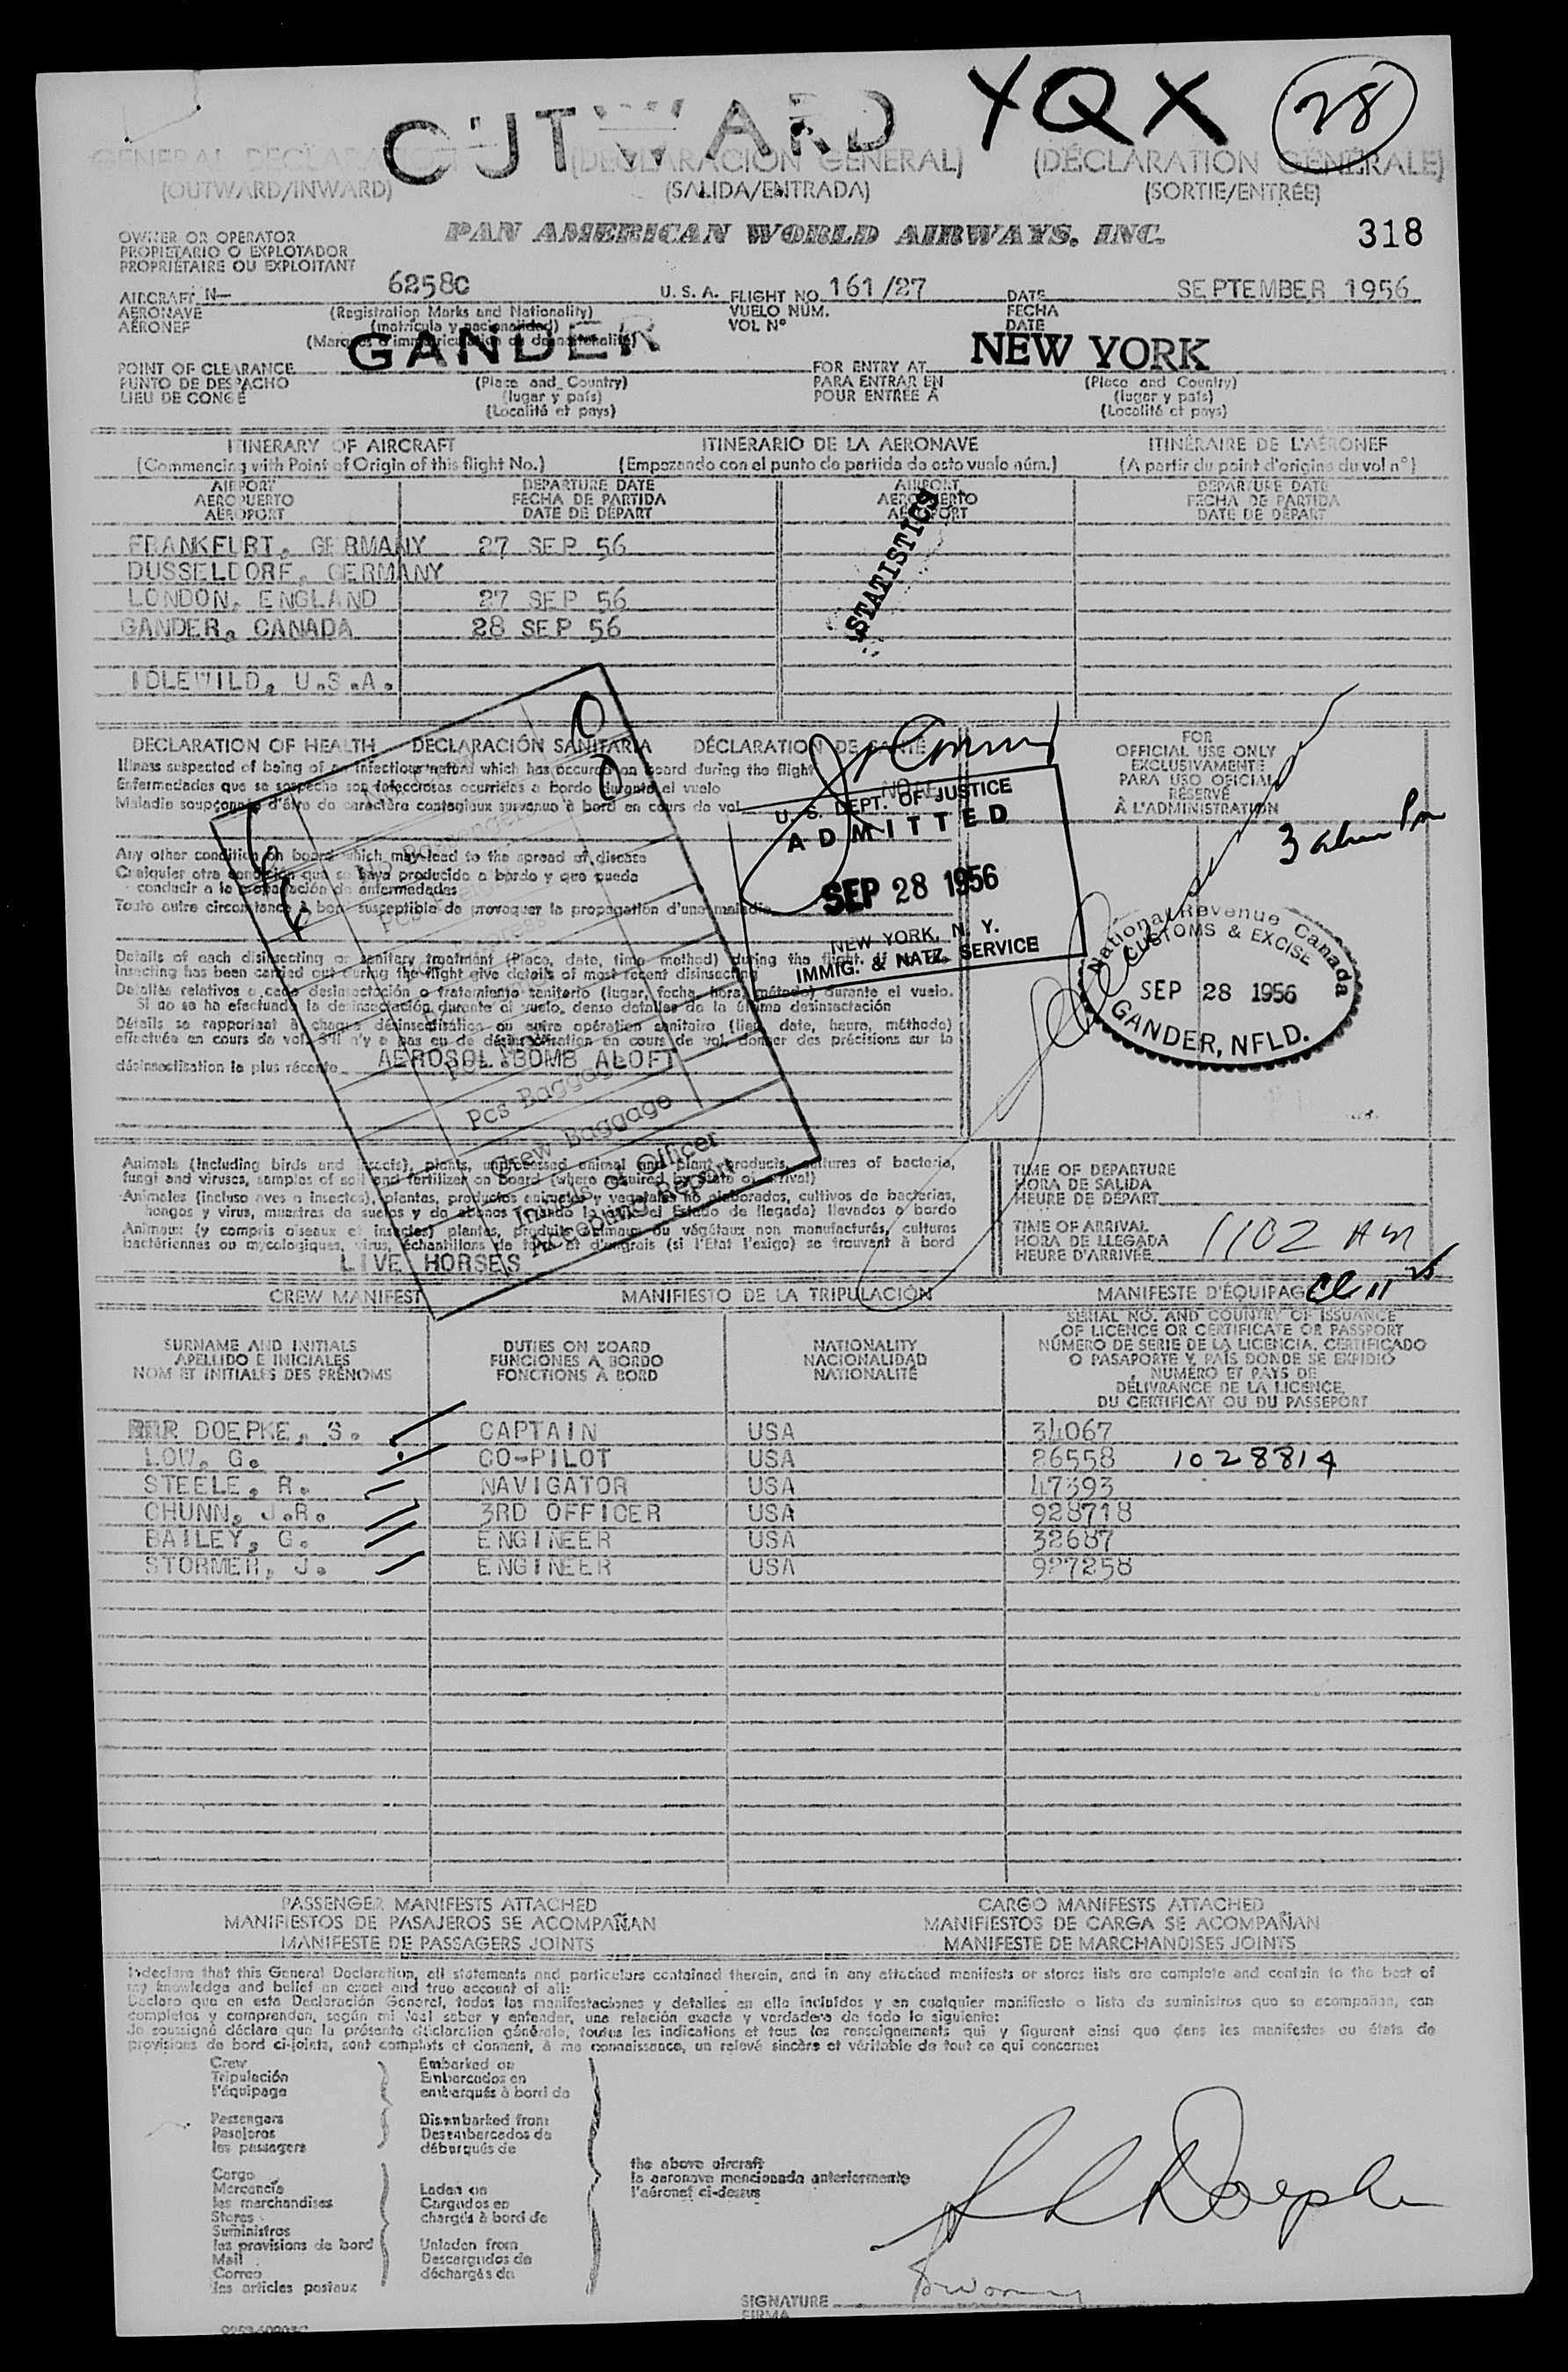 OUTWARD YQX 28
GENERAL DECLARATION (DECLARACION GENERAL) (DÉCLARATION GÉNÉRALE)
(OUTWARD/INWARD) (SALIDA/ENTRADA) (SORTIE/ENTRÉE)
OWNER OR OPERATOR
PROPIETARIO O EXPLOTADOR
PROPRIÉTAIRE OU EXPLOITANT
PAN AMERICAN WORLD AIRWAYS, INC. 318
AIRCRAFT N- 6258C U. S. A. FLIGHT NO. 161/27 DATE SEPTEMBER 1956
AERONAVE (Registration Marks and Nationality) VUELO NÚM. FECHA
AÉRONEF (matrícula y nacionalidad) VOL Nº DATE
(Marques d'immatriculation et de nationalité)
POINT OF CLEARANCE GANDER FOR ENTRY AT NEW YORK
PUNTO DE DESPACHO (Place and Country) PARA ENTRAR EN (Place and Country)
LIEU DE CONGÉ (lugar y país) POUR ENTRÉE A (lugar y país)
(Localité et pays) (Localité et pays)
ITINERARY OF AIRCRAFT ITINERARIO DE LA AERONAVE ITINÉRAIRE DE L'AÉRONEF
(Commencing with Point of Origin of this flight No.) (Empezando con el punto de partida de este vuelo núm.) (A partir du point d'origine du vol nº)
AIRPORT DEPARTURE DATE AIRPORT DEPARTURE DATE
AEROPUERTO FECHA DE PARTIDA AEROPUERTO FECHA DE PARTIDA
AÉROPORT DATE DE DÉPART AÉROPORT DATE DE DÉPART
FRANKFURT, GERMANY 27 SEP 56
DUSSELDORF, GERMANY
LONDON, ENGLAND 27 SEP 56
GANDER, CANADA 28 SEP 56
IDLEWILD, U.S.A.
STATISTICS
DECLARATION OF HEALTH DECLARACIÓN SANITARIA DÉCLARATION DE SANTÉ
Illness suspected of being of an infectious nature which has occured on board during the flight
Enfermedades que se sospeche son infecciosas ocurridas a bordo durante el vuelo
Maladie soupçonnée d'être de caractère contagieux survenue à bord en cours de vol NONE
FOR
OFFICIAL USE ONLY
EXCLUSIVAMENTE
PARA USO OFICIAL
RÉSERVÉ
À L'ADMINISTRATION
U. S. DEPT. OF JUSTICE
ADMITTED
SEP 28 1956
NEW YORK, N. Y.
IMMIG. & NATZ. SERVICE
Any other condition on board which may lead to the spread of disease
Cualquier otra condición que se haya producido a bordo y que pueda
conducir a la propagación de enfermedades
Toute autre circonstance à bord susceptible de provoquer la propagation d'une maladie
National Revenue Canada
CUSTOMS & EXCISE
SEP 28 1956
GANDER, NFLD.
Details of each disinsecting or sanitary treatment (Place, date, time, method) during the flight. If no disinsecting has been carried out during the flight give details of most recent disinsecting
Detalles relativos a cada desinsectación o tratamiento sanitario (lugar, fecha, hora, método) durante el vuelo.
Si no se ha efectuado la desinsectación durante el vuelo, dense detalles de la última desinsectación
Détails se rapportant à chaque désinsectisation ou autre opération sanitaire (lieu, date, heure, méthode)
effectuée en cours de vol. S'il n'y a pas eu de désinsectisation en cours de vol, donner des précisions sur la
désinsectisation la plus récente AEROSOL BOMB ALOFT
Pcs Baggage
Crew Baggage
Initials of Officer
Accepting Report
Animals (including birds and insects), plants, unprocessed animal and plant products, cultures of bacteria,
fungi and viruses, samples of soil and fertilizer on board (where required by State of arrival)
Animales (incluso aves e insectos), plantas, productos animales y vegetales no elaborados, cultivos de bacterias,
hongos y virus, muestras de suelos y de abonos (cuando lo exija el Estado de llegada) llevados a bordo
Animaux (y compris oiseaux et insectes) plantes, produits animaux ou végétaux non manufacturés, cultures
bactériennes ou mycologiques, virus, échantillons de terre et d'engrais (si l'Etat l'exige) se trouvant à bord
LIVE HORSES
TIME OF DEPARTURE
HORA DE SALIDA
HEURE DE DÉPART
TIME OF ARRIVAL
HORA DE LLEGADA 1102 AM
HEURE D'ARRIVÉE
CREW MANIFEST MANIFIESTO DE LA TRIPULACIÓN MANIFESTE D'ÉQUIPAGE
SURNAME AND INITIALS DUTIES ON BOARD NATIONALITY SERIAL NO. AND COUNTRY OF ISSUANCE
APELLIDO E INICIALES FUNCIONES A BORDO NACIONALIDAD OF LICENCE OR CERTIFICATE OR PASSPORT
NOM ET INITIALES DES PRÉNOMS FONCTIONS À BORD NATIONALITÉ NÚMERO DE SERIE DE LA LICENCIA, CERTIFICADO
O PASAPORTE Y PAÍS DONDE SE EXPIDIÓ
NUMÉRO ET PAYS DE
DÉLIVRANCE DE LA LICENCE,
DU CERTIFICAT OU DU PASSEPORT
DOEPKE, S. CAPTAIN USA 34067
LOW, G. CO-PILOT USA 26558 1028814
STEELE, R. NAVIGATOR USA 47393
CHUNN, J.R. 3RD OFFICER USA 928718
BAILEY, G. ENGINEER USA 32687
STORMER, J. ENGINEER USA 927258
PASSENGER MANIFESTS ATTACHED CARGO MANIFESTS ATTACHED
MANIFIESTOS DE PASAJEROS SE ACOMPAÑAN MANIFIESTOS DE CARGA SE ACOMPAÑAN
MANIFESTE DE PASSAGERS JOINTS MANIFESTE DE MARCHANDISES JOINTS
I declare that this General Declaration, all statements and particulars contained therein, and in any attached manifests or stores lists are complete and contain to the best of
my knowledge and belief an exact and true account of all:
Declaro que en esta Declaración General, todas las manifestaciones y detalles en ella incluídos y en cualquier manifiesto o lista de suministros que se acompañan, son
completos y comprenden, según mi leal saber y entender, una relación exacta y verdadera de todo lo siguiente:
Je soussigné déclare que la présente déclaration générale, toutes les indications et tous les renseignements qui y figurent ainsi que dans les manifestes ou états de
provisions de bord ci-joints, sont complets et donnent, à ma connaissance, un relevé sincère et véritable de tout ce qui concerne:
Crew Embarked on
Tripulación Embarcados en
l'équipage embarqués à bord de
Passengers Disembarked from
Pasajeros Desembarcados de
les passagers débarqués de
the above aircraft
la aeronave mencionada anteriormente
l'aéronef ci-dessus
Cargo
Mercancía Laden on
les marchandises Cargados en
Stores chargés à bord de
Suministros
les provisions de bord Unladen from
Mail Descargados de
Correo déchargés de
les articles postaux
S Doepke
SIGNATURE
FIRMA